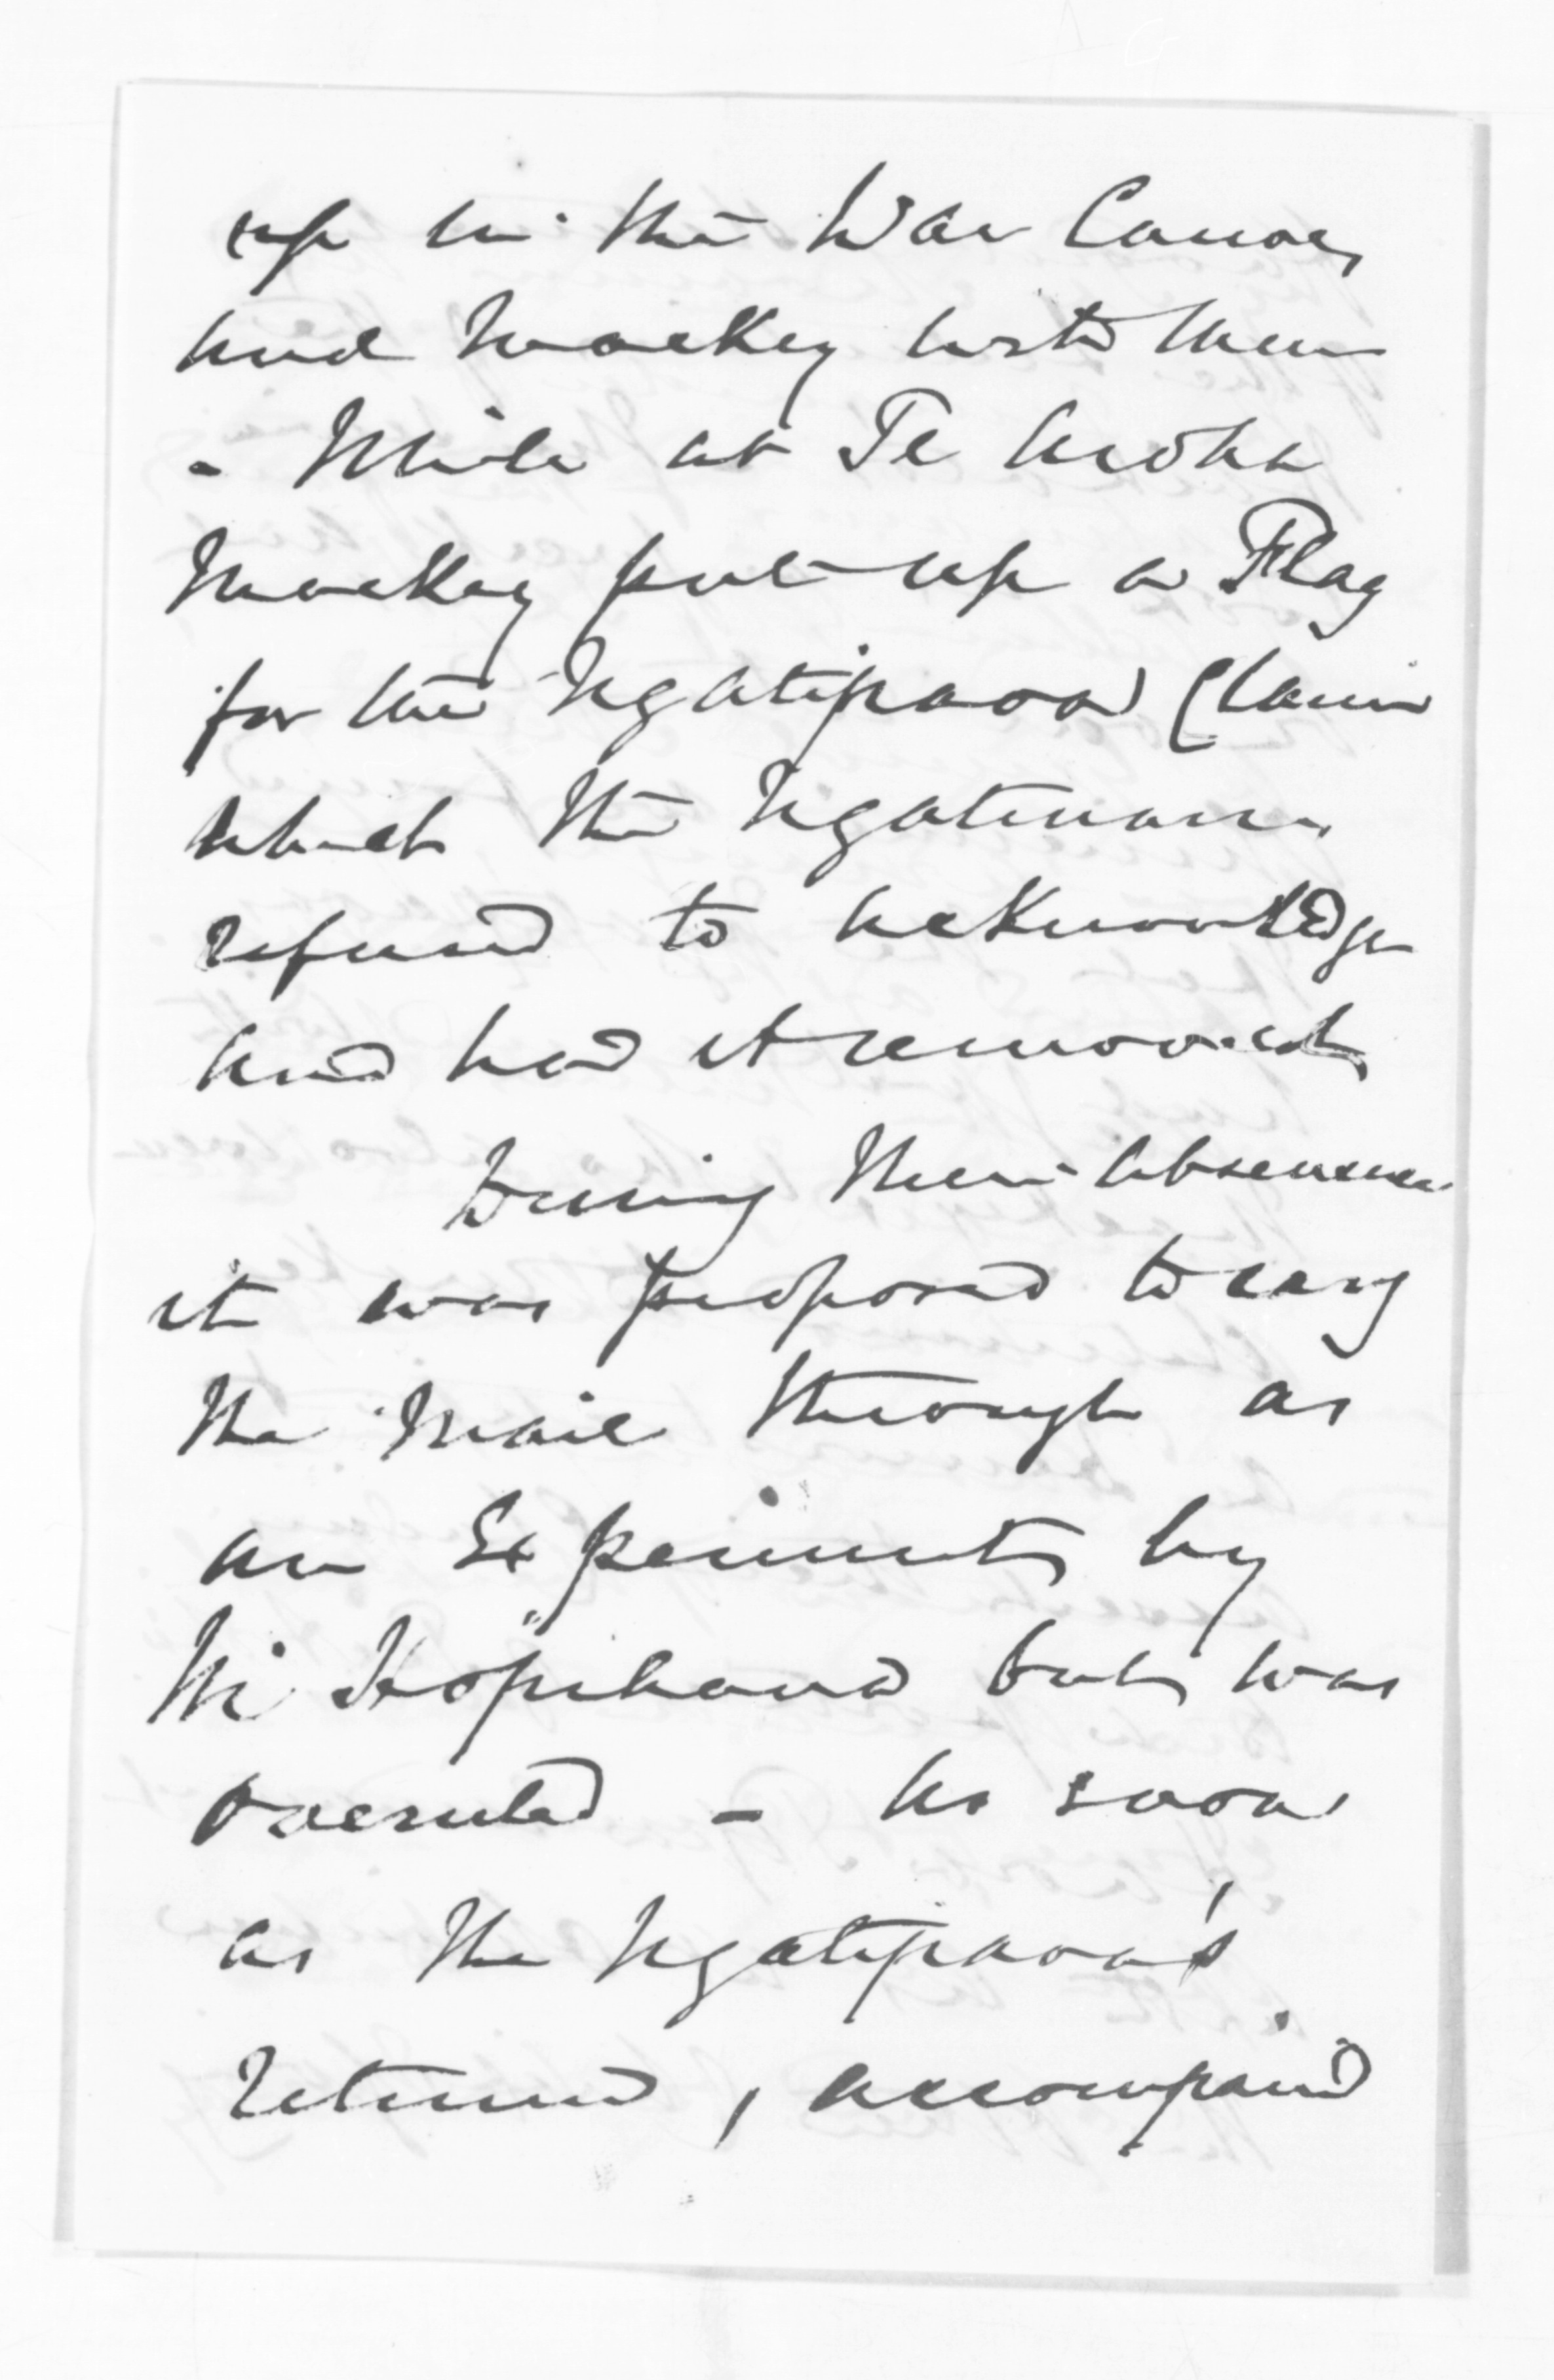 up in the War Canoe,
and Mackey with them
- While at Te Aroha
Mackey put up a Flag
for the Ngatipaoa Claim
which the Ngatimaru
refused to acknowledge
and had it removed,
During their absence
it was proposed to carry
the Mail through as
an Experiment, by
Mr but was
overruled - As soon
as the Ngatipaoa's
returned, accompanied